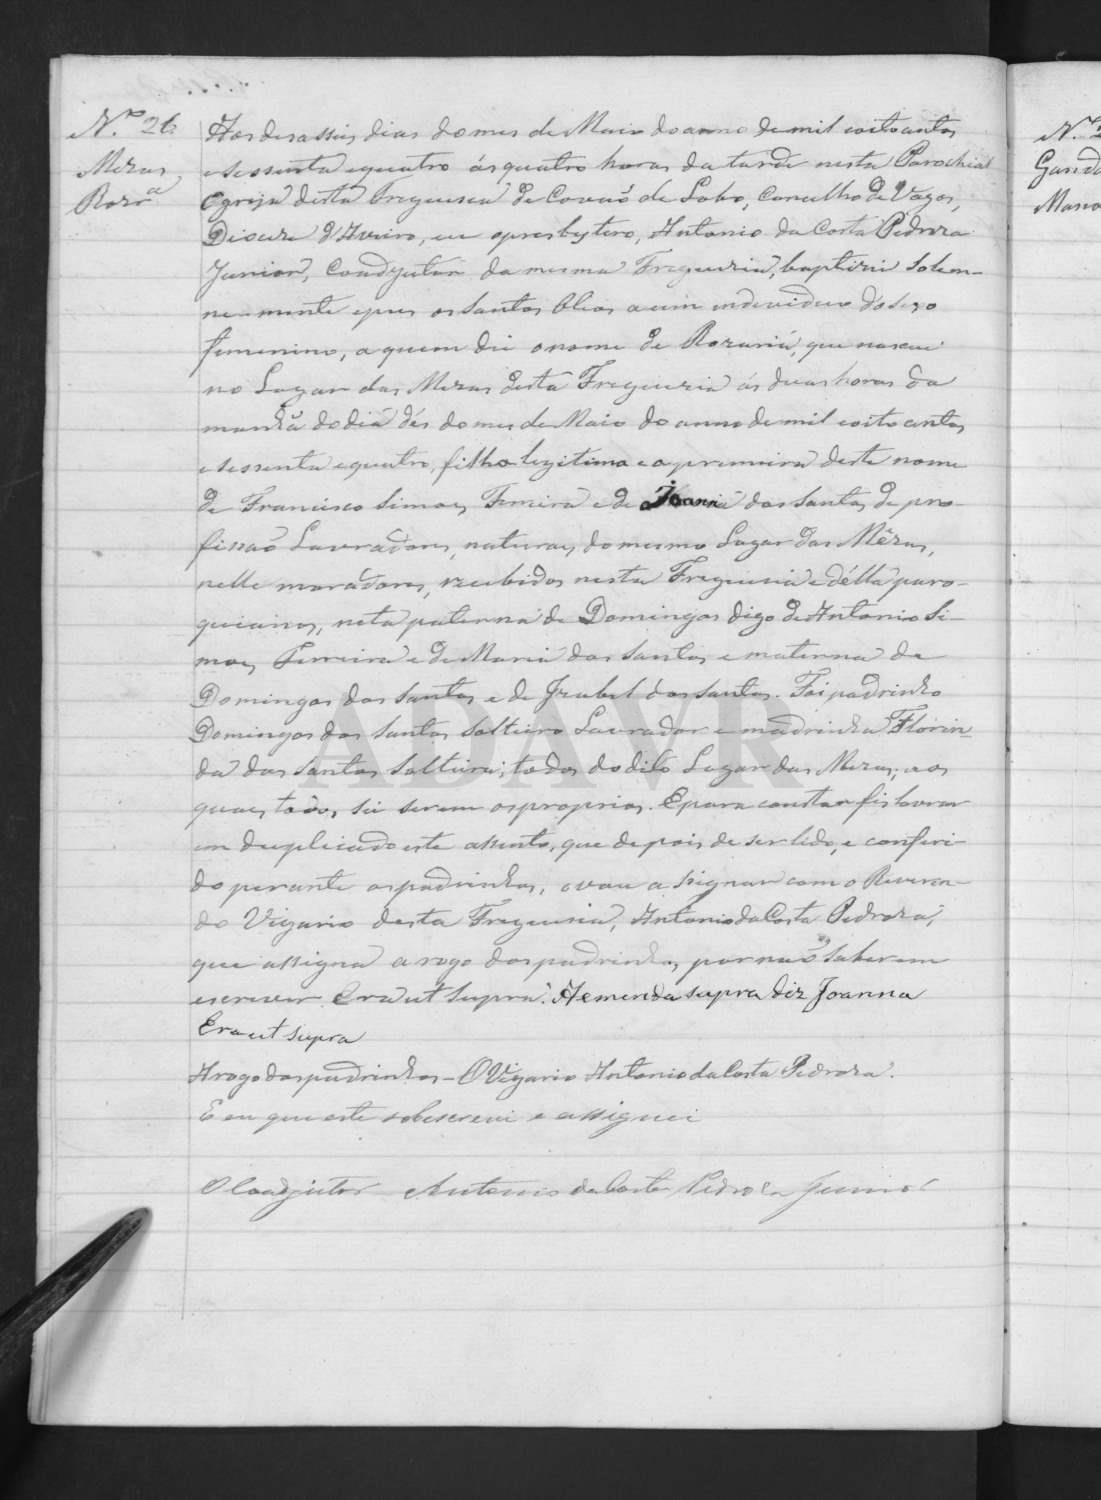 N.º 26
Mezas
Rozrª
Aos desasseis dias do mes de Maio do anno de mil oitocentos
e sessenta e quatro ás quatro horas da tarde nesta Parochial
Egreja desta Freguesia de Covaõ do Lobo, Concelho de Vagos,
Diocese d'Aveiro, eu o presbytero, Antonio da Costa Pedroza
Junior, Coadjutor da mesma Freguezia, baptizei solem-
nemente e pus os santos Oleos a um individuo do sexo
femenino, a quem dei o nome de Rozaria, que nasceu
no Lugar das Mezas desta Freguezia ás duas horas da
manhã do dia dés do mes de Maio do anno de mil oitocentos
e sessenta e quatro, filha legitima e a primeira deste nome
de Francisco Simoes Ferreira e de Joanna dos Santos de pro-
fissaõ Lavradores, naturaes do mesmo Lugar das Mêzas,
nelle moradores, recebidos nesta Freguesia e délla paro-
quianos, neta paterna de Domingos digo de Antonio Si-
moes Ferreira e de Maria dos Santos e materna de
Domingos dos Santos e de Izabel dos Santos. Foi padrinho
Domingos dos Santos solteiro Lavrador e madrinha Florin-
da dos Santos solteira; todos do dito Lugar das Mezas; aos
quaes todos sei serem os proprios. E para constar fis lavrar
em duplicado este assento, que depois de ser lido, e conferi-
do perante os padrinhos, o vou assignar com o Reveren-
do Vigario desta Freguesia, Antonio da Costa Pedroza,
que assigna a rogo dos padrinhos por naõ saberem
escrever. Era ut supra. A emenda supra diz Joanna
Era ut supra
A rogo dos padrinhos – O Vigario Antonio da Costa Pedroza.
E eu que este sobescrevi e assignei
O Coadjutor Antonio da Costa Pedroza Junior
N.º 2
Gand
Mano
ADAVR